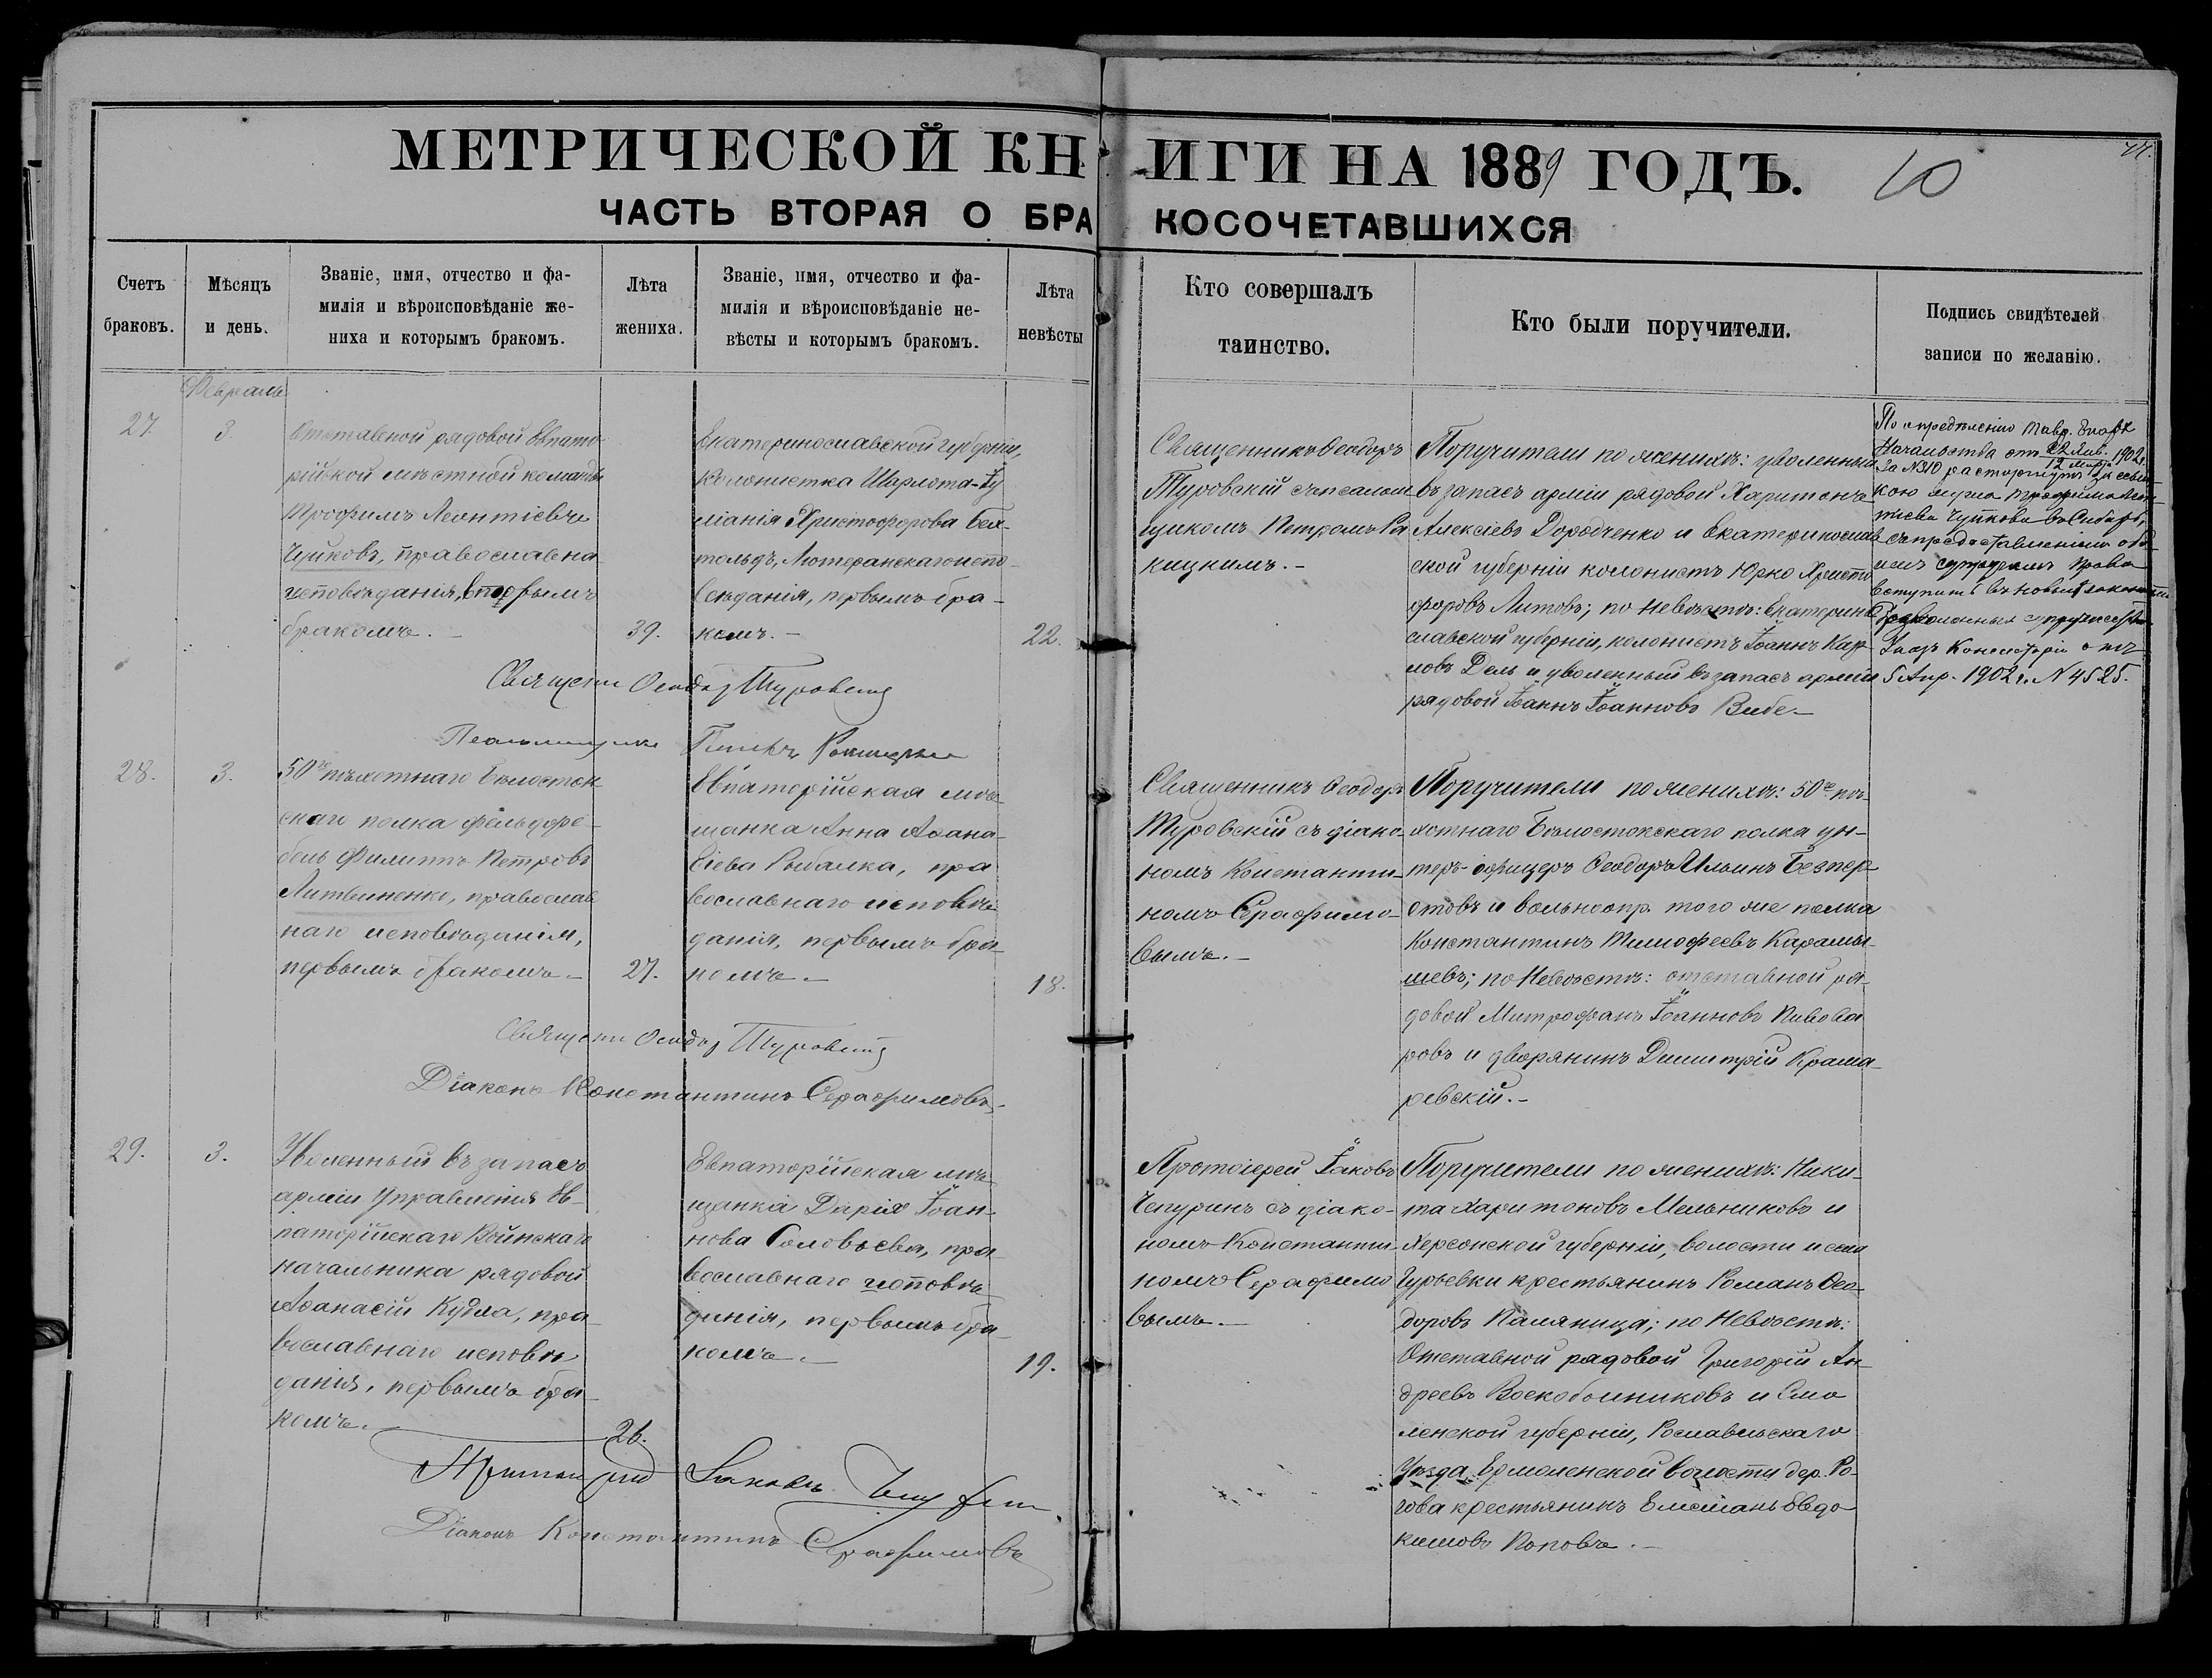 МЕТРИЧЕСКОЙ КНИГИ НА 1889 ГОДЪ.
10
ЧАСТЬ ВТОРАЯ О БРАКОСОЧЕТАВШИХСЯ
Счетъ
браковъ.
Мѣсяцъ
и день.
Званіе, имя, отчество и фа-
милія и вѣроисповѣданіе же-
ниха и которымъ бракомъ.
Лѣта
жениха.
Званіе, имя, отчество и фа-
милія и вѣроисповѣданіе не-
вѣсты и которымъ бракомъ.
Лѣта
невѣсты
Кто совершалъ
таинство.
Кто были поручители.
Подпись свидѣтелей
записи по желанію.
Февраль
27.
3.
Отставной рядовой Евпато-
рійской мѣстной команды
Трофимъ Леонтіевъ
Чуйковъ, православна
исповѣданія, вторымъ
бракомъ. -
39.
Екатеринославской губерніи,
колонистка Шарлота-Іу
ліанія Христофорова
Лютеранскаго испо-
вѣданія, первымъ бра-
комъ. -
22.
Священникъ Ѳеодоръ
Туровскій съ псалом
щикомъ Петромъ Ра
кицкимъ. -
Поручители по женихѣ: уволенный
въ запасъ арміи рядовой Харитонъ
Алексіевъ Дородченко и Екатеринослав
ской губерніи колонистъ Юрко Христо
форовъ Литовъ; по невѣстѣ: Екатерино
славской губерніи, колонистъ Іоаннъ Кар
ловъ Дель и уволенный въ запасъ арміи
рядовой Іоаннъ Іоанновъ Вибе. -
По опредѣленію Тавр. Епарх
Начальства отъ 22 Янв. 1902 г.
12 Марта
за № 310 расторгнутъ за ссыл
кою мужа Трофима Леон
тіева Чуйкова въ Сибирь,
съ предоставленіемъ обо
имъ супругамъ права
вступить въ новый законный
Указъ Консисторіи отъ
5 Апр. 1902 г. № 4525.
Священ Ѳеодор Туровскій
Псаломщикъ Петръ Ракицкій
28.
3.
50го пѣхотнаго Бѣлосток
скаго полка фельдфе-
бель Филиппъ Петровъ
Литвиненко, православ
наго исповѣданія,
первымъ бракомъ. -
27.
Евпаторійская мѣ
щанка Анна Аѳана-
сіева Рыбалка, пра
вославнаго исповѣ
данія, первымъ бра-
комъ. -
18.
Священникъ Ѳеодоръ
Туровскій съ діако-
номъ Константи-
номъ Серафимо-
вымъ. -
Поручители по женихѣ: 50го пѣ-
хотнаго Бѣлостокскаго полка ун-
теръ-офицеръ Ѳеодоръ Ильинъ Безпер-
стовъ и вольноопр. того же полка
Константинъ Тимофеевъ Карамы-
шевъ; по невѣстѣ: отставной ря-
довой Митрофанъ Іоанновъ Пивова
ровъ и дворянинъ Димитрій Крама-
ревскій. -
Священ Ѳеодор Туровскій
Діаконъ Константинъ Серафимовъ.
29.
3.
Уволенный въ запасъ
арміи Управленія Ев-
паторійскаго Воинскаго
начальника рядовой
Аѳанасій Кубла, пра-
вославнаго исповѣ
данія, первымъ бра-
комъ.
26.
Евпаторійская мѣ-
щанка Дарія Іоан-
нова Соловьева, пра-
вославнаго исповѣ
данія, первымъ бра-
комъ. -
19.
Протоіерей Іаковъ
Чепуринъ съ діако-
номъ Константи
номъ Серафимо
вымъ. -
Поручители по женихѣ: Ники-
та Харитоновъ Мельниковъ и
Херсонской губерніи, волости и села
Гурьевки крестьянинъ Романъ Ѳео-
доровъ Паляница; по невѣстѣ:
Отставной рядовой Григорій Ан-
дреевъ Воскобойниковъ и Смо
ленской губерніи, Рославльскаго
Уѣзда, Ермоленской волости дер. Ро-
гова крестьянинъ Емельянъ Евдо-
кимовъ Поповъ. -
Протоіерей Іаковъ Чепуринъ
Діаконъ Константинъ Серафимовъ